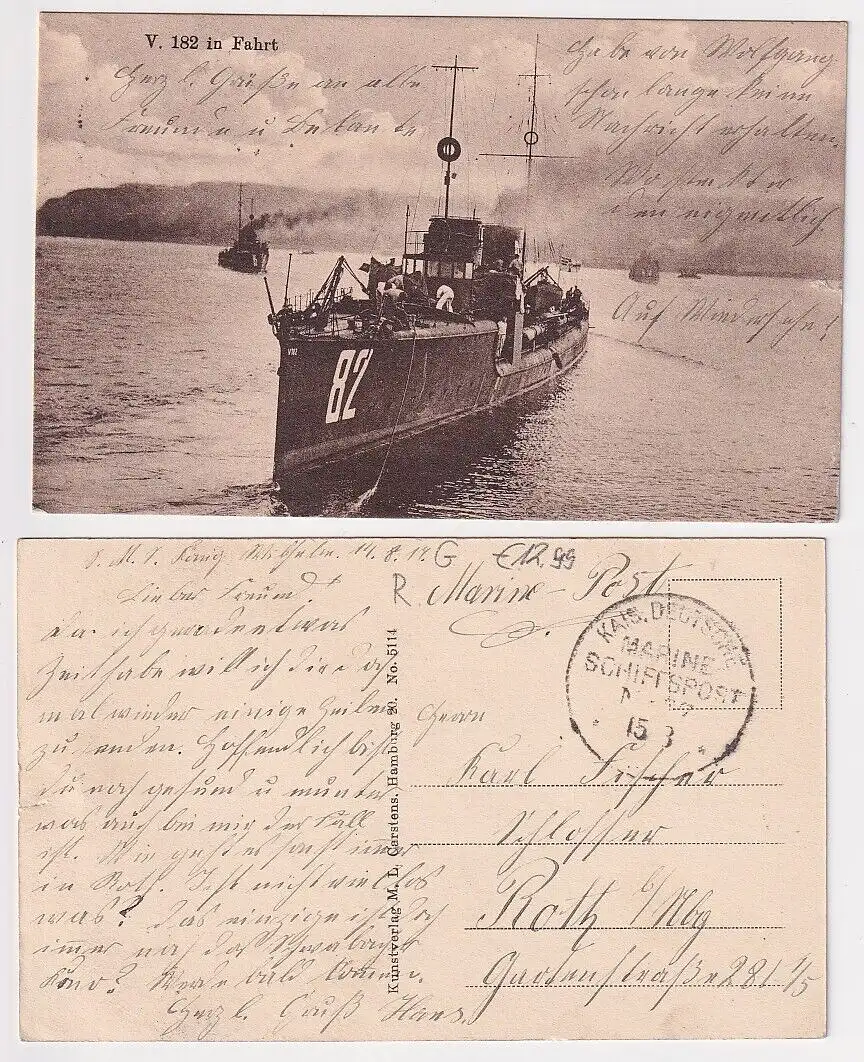 V. 182 in Fahrt
Herzl. Grüße an alle
Freunde u Bekante
Habe von Wolfgang
schon lange keine
Nachricht erhalten.
Wo steckt er
den eigentlich
Auf Wiedersehn!
V182
82
S. M. S. König Wilhelm. 14. 8. 17.
G €12,99
Lieber Freund!
Da ich gerade etwas
Zeit habe will ich dir doch
mal wieder einige Zeilen
zu senden. Hoffendlich bist
du noch gesund u munter
was auch bei mir der Fall
ist. Wie geht es sonst immer
in Roth. Ist nicht viel los
was? Das einzige ist doch
immer noch das Schwabacher
Kino? Werde bald kommen.
Herzl. Gruß Hans.
Kunstverlag M. L. Carstens, Hamburg 20. No. 5114
R Marine-Post
KAIS. DEUTSCHE
MARINE
SCHIFFSPOST
15 8
Herrn
Karl Fischer
Schlosser
Roth b/Nbg
Gartenstraße 281 1/5